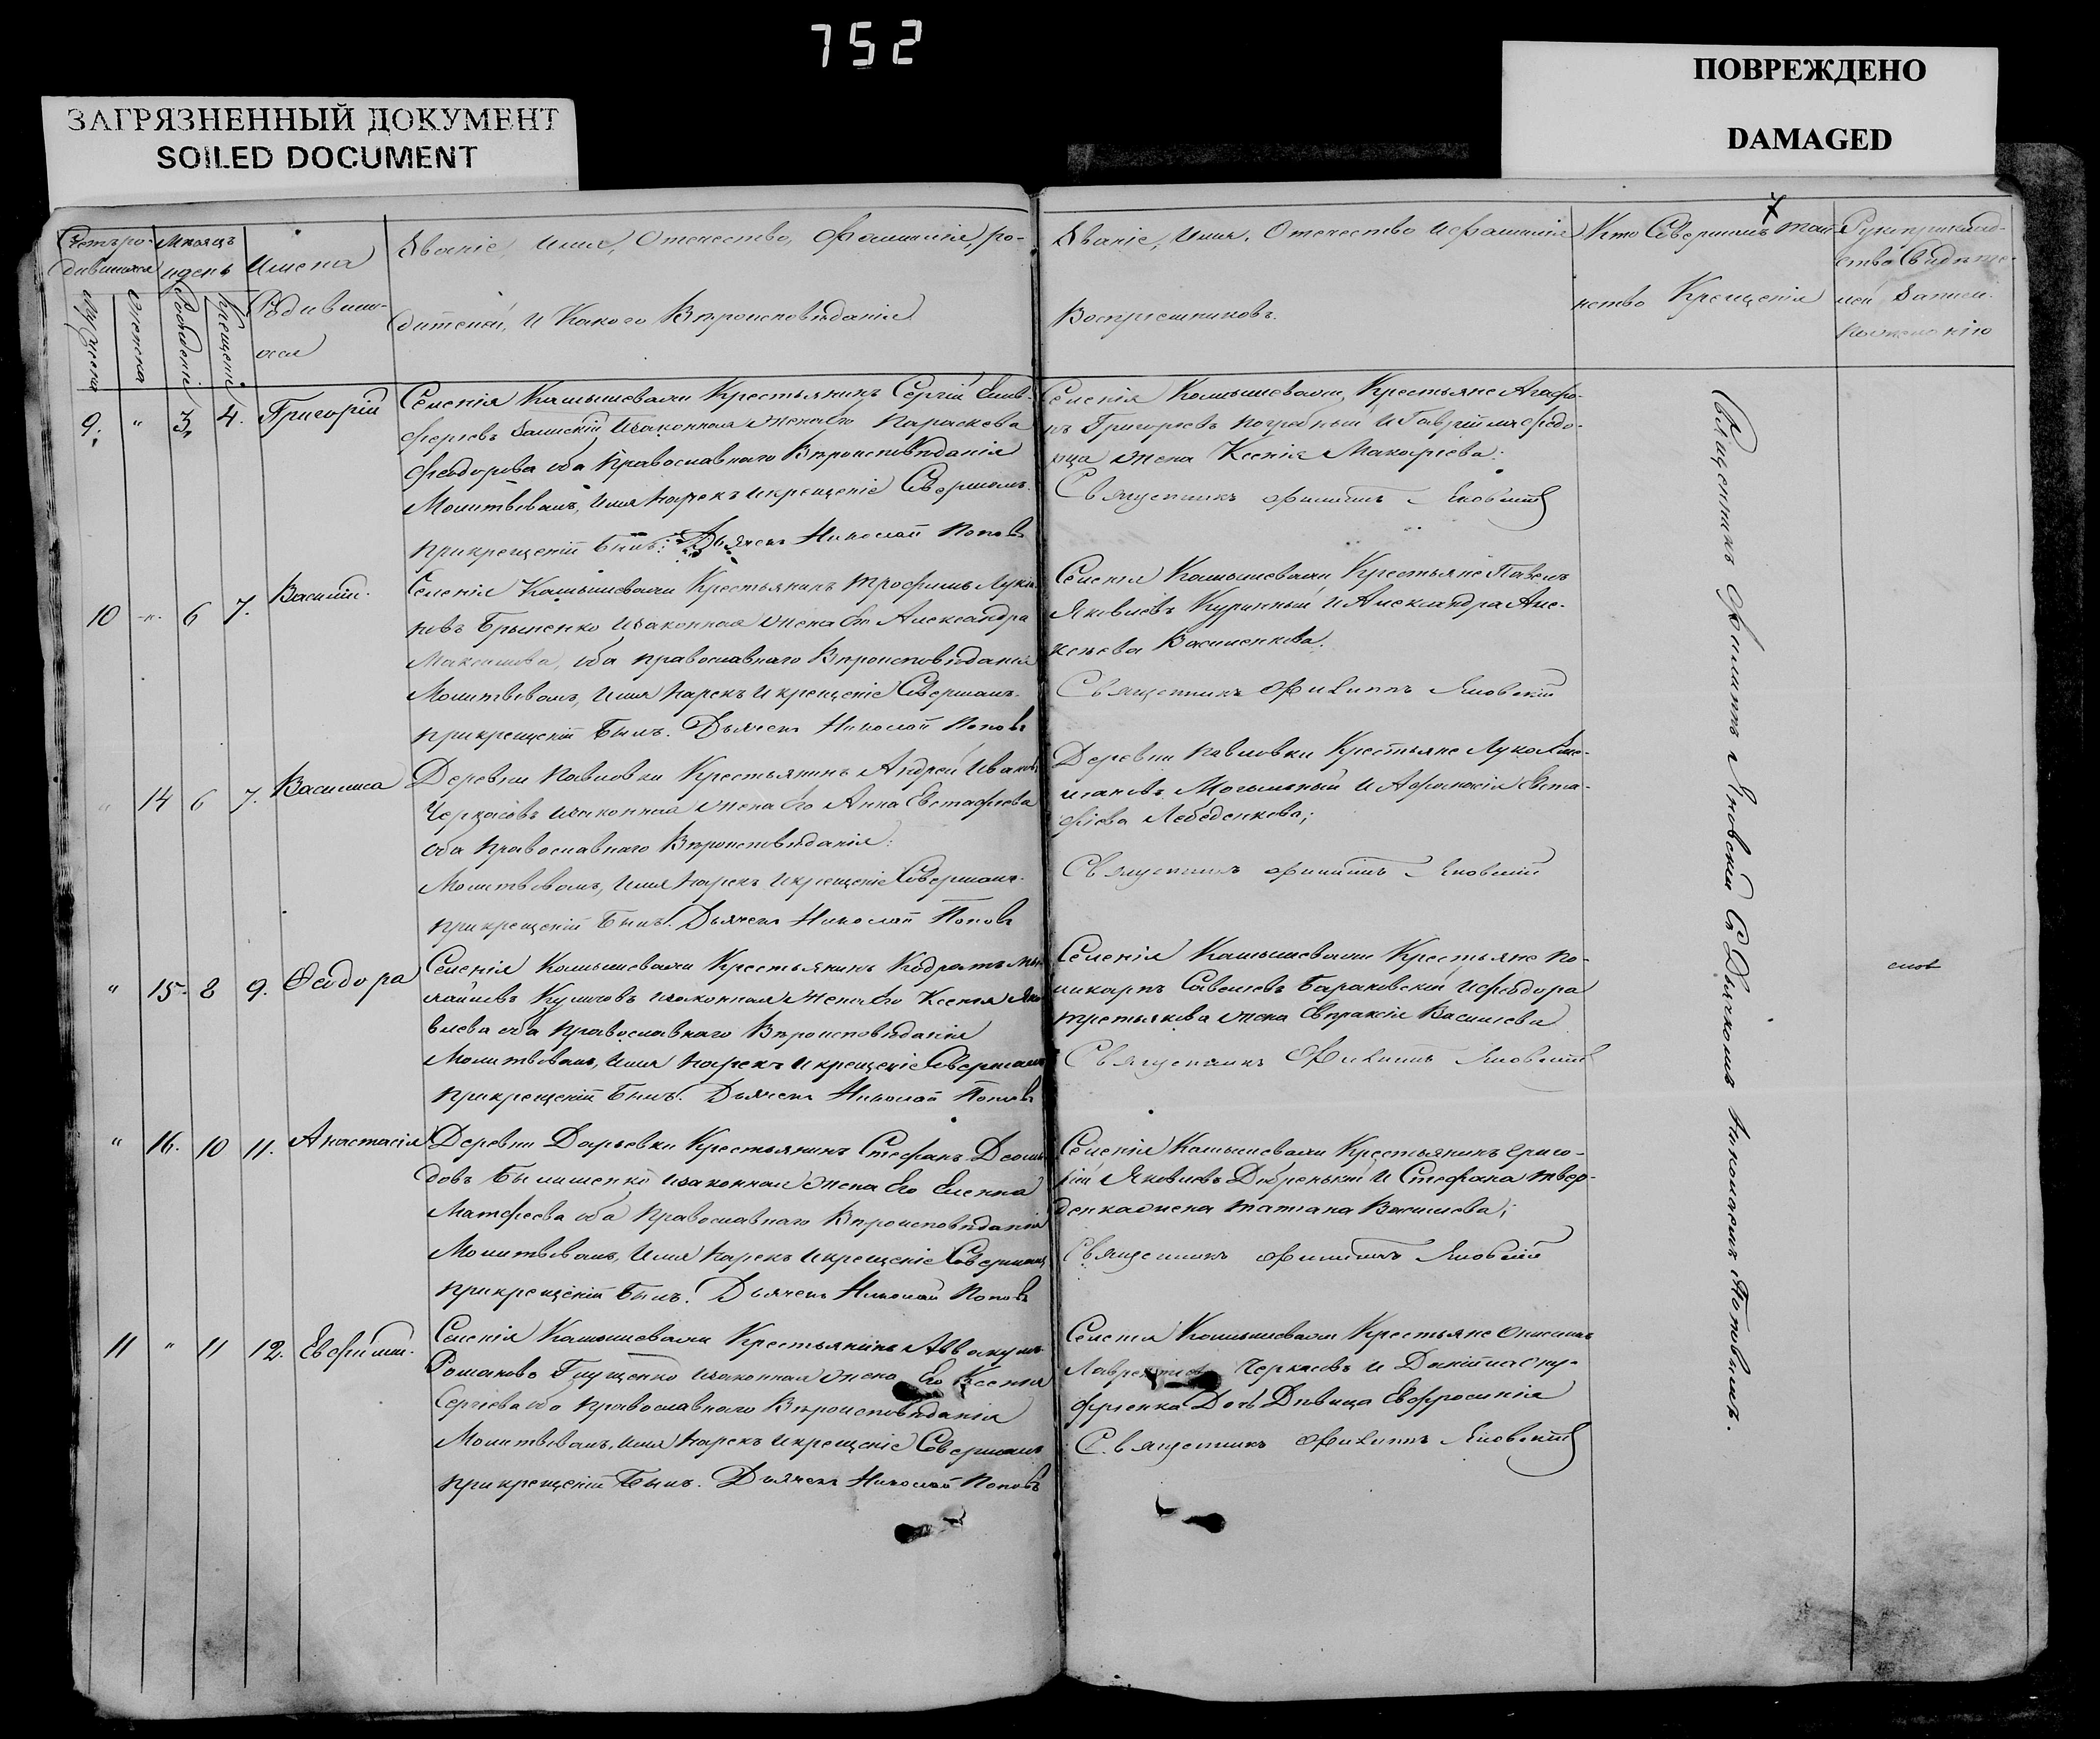 752
ПОВРЕЖДЕНО
DAMAGED
ЗАГРЯЗНЕННЫЙ ДОКУМЕНТ
SOILED DOCUMENT
7
Счетъ ро-
дившихся
Мѣсяцъ
и день
Имена
Родивши-
хся
Мужеска
Женска
Рожденіе
Крещеніе
Званіе, Имя, Отечество, Фамилія, ро-
дителей, и Какого Вѣроисповѣданія
Званіе, Имя, Отечество и Фамилія
Воспріемниковъ.
Кто Совершилъ таин-
нство Крещенія
Рукоприклад-
ство Свидѣте-
лей Записи
по желанію
9. " 3, 4. Григорій
Селенія Камышевахи Крестьянинъ Сергій
и законная жена его Параскева
Феодорова оба Православнаго Вѣроисповѣданія
Молитвовалъ, Имя нарекъ и крещеніе Совершалъ.
при крещеніи былъ: Дьячекъ Николай Поповъ
Селенія Камышевахи, Крестьяне Агафо-
нъ Григорьевъ Погребный и Гавріила Федо-
рца жена Ксенія Макаріева:
Священникъ Филиппъ Яновскій
10 " 6 7. Василій.
Селенія Камышевахи Крестьянинъ Трофимъ Луки-
новъ Брыненко и законная жена его Александра
Максимова, оба православнаго Вѣроисповѣданія
Молитвовалъ, Имя нарекъ и крещеніе Совершалъ.
при крещеніи былъ. Дьячекъ Николай Поповъ
Селенія Камышевахи Крестьяне Павелъ
Яковлевъ Куринный и Александра Але-
ксѣева Василенкова.
Священникъ Филиппъ Яновскій
" 14 6 7. Василиса
Деревни Павловки Крестьянинъ Андрей Ивановъ
Черкасовъ и законная жена его Анна Евстафіева
оба Православнаго Вѣроисповѣданія:
Молитвовалъ, Имя нарекъ и крещеніе Совершалъ.
при крещеніи былъ. Дьячекъ Николай Поповъ
Деревни Павловки Крестьяне Лука
Могильный и Афанасія Евста-
фіева Лебеденкова;
Священникъ Филиппъ Яновскій
" 15. 8 9. Феодора
Селенія Камышевахи Крестьянинъ Кодратъ
Куличовъ и законная жена его Ксенія Яко-
влева оба Православнаго Вѣроисповѣданія
Молитвовалъ, Имя нарекъ и крещеніе Совершалъ
при крещеніи былъ. Дьячекъ Николай Поповъ
Селенія Камышевахи Крестьяне По-
ликарпъ Савельевъ Барановскій и Феодора
Третьякова жена Евпраксія Василева
Священникъ Филиппъ Яновскій
" 16. 10 11. Анастасія
Деревни Дарьевки Крестьянинъ Стефанъ
довъ Билишенко и законная жена Его Елена
Матфеева оба Православнаго Вѣроисповѣданія
Молитвовалъ, Имя нарекъ и крещеніе Совершалъ
при крещеніи былъ. Дьячекъ Николай Поповъ
Селенія Камышевахи Крестьянинъ Григо-
рій Яковлевъ Добренькій и Стефана Твер-
денка жена Татіана Василева;
Священникъ Филиппъ Яновскій
11 " 11 12. Евфимій.
Селенія Камышевахи Крестьянинъ Аввакумъ
Романовъ и законная жена Его Ксенія
Сергіева оба Православнаго Вѣроисповѣданія
Молитвовалъ, Имя нарекъ и крещеніе Совершалъ
при крещеніи былъ. Дьячекъ Николай Поповъ
Селенія Камышевахи Крестьяне
Черкасовъ и Даніила Ону-
фріенка Дочь Дѣвица Евфросинія
Священникъ Филиппъ Яновскій
Священникъ Филиппъ Яновскій Съ Дьячкомъ Николаемъ Поповымъ.